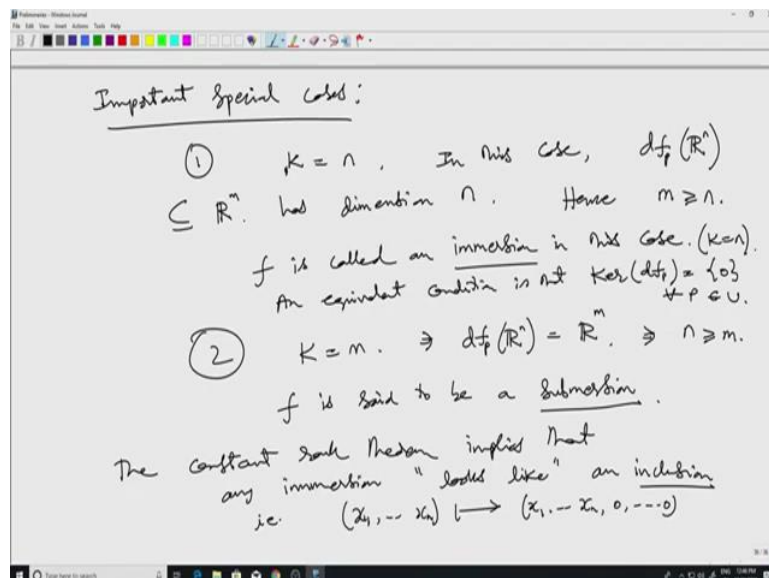 Preliminaries - Windows Journal
File Edit View Insert Actions Tools Help
Important Special cases:
① K = n . In this case, df_p(ℝⁿ)
⊆ ℝᵐ. has dimension n . Hence m ≥ n.
f is called an immersion in this case. (K=n).
An equivalent condition is that Ker(df_p) = {0}
∀ p ∈ U.
② K = m. ⇒ df_p(ℝⁿ) = ℝᵐ. ⇒ n ≥ m.
f is said to be a submersion.
The constant rank theorem implies that
any immersion "looks like" an inclusion
i.e. (x₁, -- xₙ) ↦ (x₁, -- xₙ, 0, ---- 0)
Type here to search